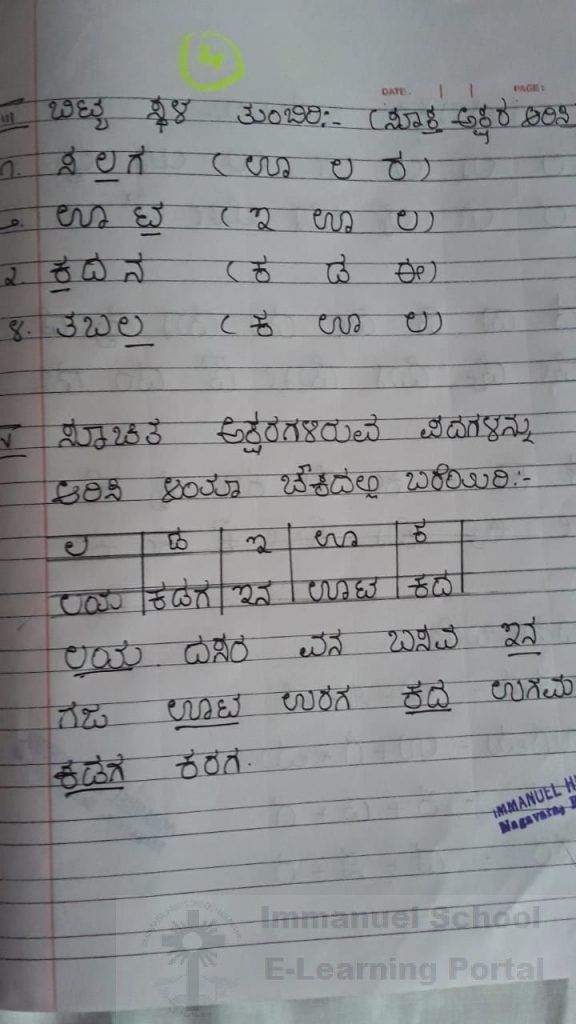 4
DATE PAGE:
III ಬಿಟ್ಟ ಸ್ಥಳ ತುಂಬಿರಿ:- (ಸೂಕ್ತ ಅಕ್ಷರ ಆರಿಸಿ
೧. ಸಲಗ ( ಊ ಲ ಕ)
೨. ಊಟ ( ಇ ಊ ಲ)
೩. ಕದನ (ಕ ಡ ಈ)
೪. ತಬಲ (ಕ ಊ ಲ)
ಸೂಚಿತ ಅಕ್ಷರಗಳಿರುವ ಪದಗಳನ್ನು
ಆರಿಸಿ ಚೌಕದಲ್ಲಿ ಬರೆಯಿರಿ:-
ಲ ಡ ಇ ಊ ಕ
ಲಯ ಕಡಗ ಇನ ಊಟ ಕದ
ಲಯ ದಸರ ವನ ಬಸವ ಇನ
ಗಜ ಊಟ ಉರಗ ಕದ ಉಗಮ
ಕಡಗ ಕರಗ.
IMMANUEL H
Immanuel School
E-Learning Portal